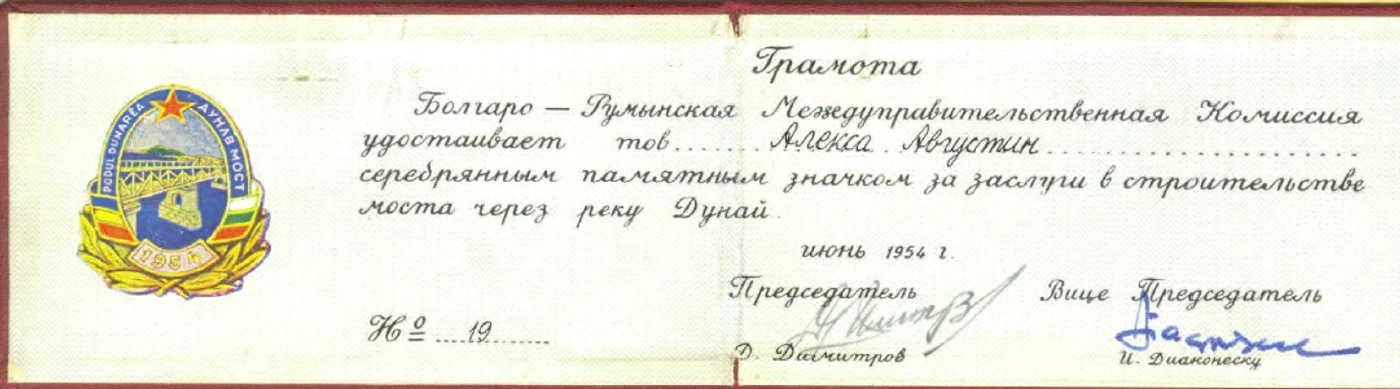 PODUL DUNAREA ДУНАВ МОСТ
1954
Грамота
Болгаро — Румынская Междуправительственная Комиссия
удостаивает тов....... Алекса Августин
серебрянным памятным значком за заслуги в строительстве
моста через реку Дунай.
июнь 1954 г.
Председатель Вице Председатель
Но 19
Д. Димитров И. Диаконеску